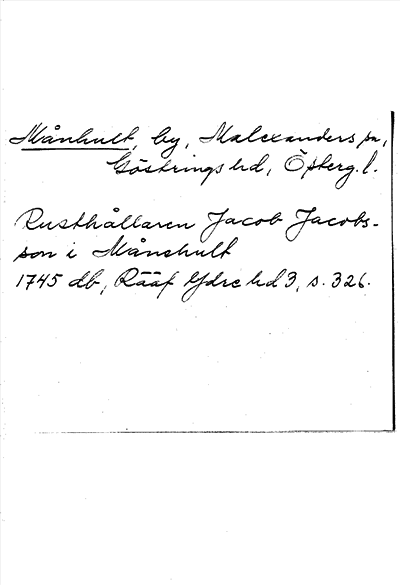 Månhult, by, Malexanders sn,
Göstrings hd, Österg. l.
Rusthållaren Jacob Jacobs-
son i Månshult
1745 db, Rääf Ydre hd 3, s. 326.